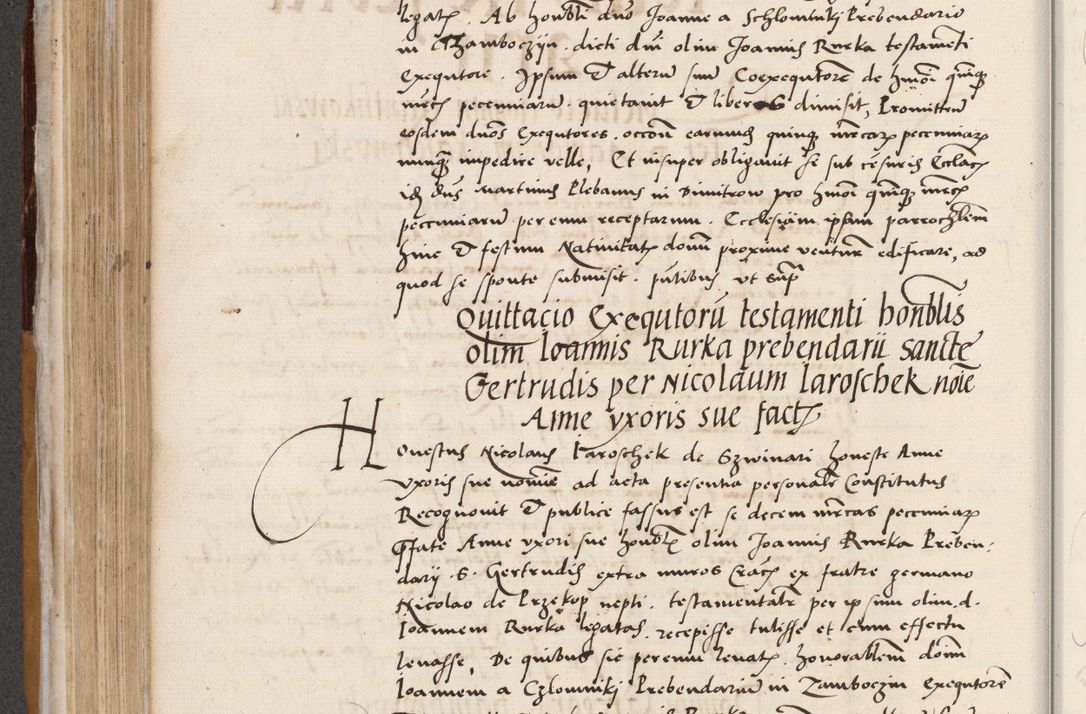 legatȝ. Ab honbli dno Joanne a Schlomniki Prebendario
in Zamboczijn. dicti dni olim Joannis Rurka testamēti
Exequtore. Ipsum & alterum suū Coexequtorē de hmōi quinqȝ
mrcȝ pecuniarū. quietauit & liberos dimisit, Promittens
eosdem duos Exequtores. occōne earundē quinqȝ mrcarȝ pecuniarȝ
nunqȝ impedire velle, Et insuper obligauit se sub cēsuris Ecclāȝ
idȝ dns Martinus Plebanus in Dimitrow pro hmōi quinqȝ mrcȝ
pecuniarū per eum receptarum. Ecclesiam ipsam parrochlem
hinc & festum Natiuitatȝ domī proxime venturū edificare, ad
quod se sponte submisit. pntibus vt supȝ
Quittacio Exequtorū testamenti honbllis
olim Ioannis Rurka prebendarii sancte
Gertrudis per Nicolaum Iaroschek noīe
Anne vxoris sue factȝ
Honestus Nicolaus Jaroschek de Szwinari honeste Anne
vxoris sue nomīe ad acta presentia personalr Constitutus
Recognouit & publice fassus est se decem mrcas pecuniarȝ
pfate Anne vxori sue honblȝ olim Joannis Rurka Preben-
darij. S. Gertrudis extra muros Cracȝ ex fratre germano
Nicolao de Przekop nepti. testamentalr per ipsum olim d.
Ioannem Rurka legatas. recepisse tulisse et cum effectu
leuasse, De quibus sic per eum leuatȝ. honorablem doīm
Ioannem a Czlomniki Prebendariū in Zamboczin Exequtorē